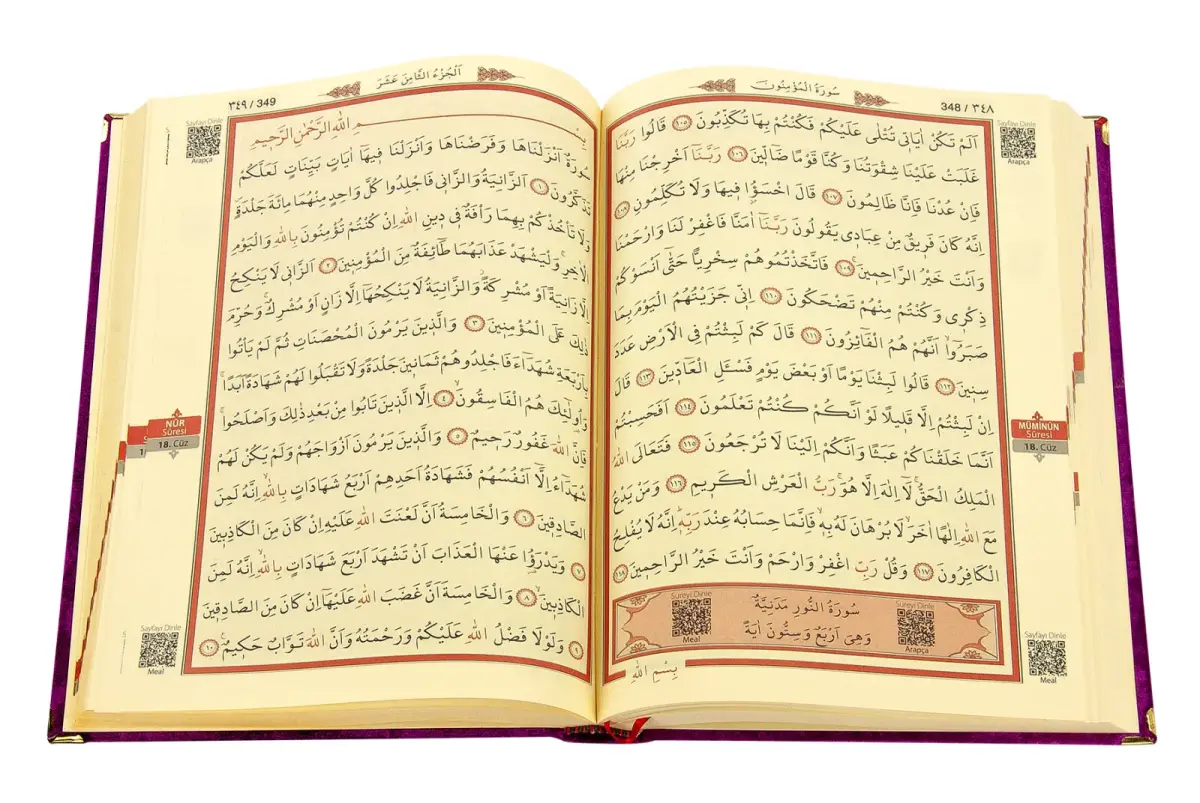 سُورَةُ الْمُؤْمِنُونَ
348 / ٣٤٨
Sayfayı Dinle
Arapça
اَلَمْ تَكُنْ اٰيَاتٖي تُتْلٰى عَلَيْكُمْ فَكُنْتُمْ بِهَا تُكَذِّبُونَ ١٠٥ قَالُوا رَبَّنَا
غَلَبَتْ عَلَيْنَا شِقْوَتُنَا وَكُنَّا قَوْمًا ضَٓالّٖينَ ١٠٦ رَبَّنَٓا اَخْرِجْنَا مِنْهَا
فَاِنْ عُدْنَا فَاِنَّا ظَالِمُونَ ١٠٧ قَالَ اخْسَؤُ۫ا فٖيهَا وَلَا تُكَلِّمُونِ ١٠٨
اِنَّهُ كَانَ فَرٖيقٌ مِنْ عِبَادٖي يَقُولُونَ رَبَّنَٓا اٰمَنَّا فَاغْفِرْ لَنَا وَارْحَمْنَا
وَاَنْتَ خَيْرُ الرَّاحِمٖينَ ١٠٩ فَاتَّخَذْتُمُوهُمْ سِخْرِيًّا حَتّٰٓى اَنْسَوْكُمْ
ذِكْرٖي وَكُنْتُمْ مِنْهُمْ تَضْحَكُونَ ١١٠ اِنّٖي جَزَيْتُهُمُ الْيَوْمَ بِمَا
صَبَرُٓوا اَنَّهُمْ هُمُ الْفَٓائِزُونَ ١١١ قَالَ كَمْ لَبِثْتُمْ فِي الْاَرْضِ عَدَدَ
سِنٖينَ ١١٢ قَالُوا لَبِثْنَا يَوْمًا اَوْ بَعْضَ يَوْمٍ فَسْـَٔلِ الْعَٓادّٖينَ ١١٣ قَالَ
اِنْ لَبِثْتُمْ اِلَّا قَلٖيلًا لَوْ اَنَّكُمْ كُنْتُمْ تَعْلَمُونَ ١١٤ اَفَحَسِبْتُمْ
اَنَّمَا خَلَقْنَاكُمْ عَبَثًا وَاَنَّكُمْ اِلَيْنَا لَا تُرْجَعُونَ ١١٥ فَتَعَالَى اللّٰهُ
الْمَلِكُ الْحَقُّۚ لَٓا اِلٰهَ اِلَّا هُوَۚ رَبُّ الْعَرْشِ الْكَرٖيمِ ١١٦ وَمَنْ يَدْعُ
مَعَ اللّٰهِ اِلٰهًا اٰخَرَۙ لَا بُرْهَانَ لَهُ بِهٖۙ فَاِنَّمَا حِسَابُهُ عِنْدَ رَبِّهٖؕ اِنَّهُ لَا يُفْلِحُ
الْكَافِرُونَ ١١٧ وَقُلْ رَبِّ اغْفِرْ وَارْحَمْ وَاَنْتَ خَيْرُ الرَّاحِمٖينَ ١١٨
سُورَةُ النُّورِ مَدَنِيَّةٌ
وَهِيَ اَرْبَعٌ وَسِتُّونَ اٰيَةً
Sureyi Dinle
Arapça
Sureyi Dinle
Meal
بِسْمِ اللّٰهِ
MÜMİNÛN
Sûresi
18. Cüz
Sayfayı Dinle
Meal
اَلْجُزْءُ الثَّامِنَ عَشَرَ
٣٤٩ / 349
Sayfayı Dinle
Arapça
بِسْمِ اللّٰهِ الرَّحْمٰنِ الرَّحٖيمِ
سُورَةٌ اَنْزَلْنَاهَا وَفَرَضْنَاهَا وَاَنْزَلْنَا فٖيهَٓا اٰيَاتٍ بَيِّنَاتٍ لَعَلَّكُمْ
تَذَكَّرُونَ ١ اَلزَّانِيَةُ وَالزَّانٖي فَاجْلِدُوا كُلَّ وَاحِدٍ مِنْهُمَا مِائَةَ جَلْدَةٍ
وَلَا تَأْخُذْكُمْ بِهِمَا رَأْفَةٌ فٖي دٖينِ اللّٰهِ اِنْ كُنْتُمْ تُؤْمِنُونَ بِاللّٰهِ وَالْيَوْمِ
الْاٰخِرِۚ وَلْيَشْهَدْ عَذَابَهُمَا طَٓائِفَةٌ مِنَ الْمُؤْمِنٖينَ ٢ اَلزَّانٖي لَا يَنْكِحُ
اِلَّا زَانِيَةً اَوْ مُشْرِكَةًؗ وَالزَّانِيَةُ لَا يَنْكِحُهَٓا اِلَّا زَانٍ اَوْ مُشْرِكٌۚ وَحُرِّمَ
ذٰلِكَ عَلَى الْمُؤْمِنٖينَ ٣ وَالَّذٖينَ يَرْمُونَ الْمُحْصَنَاتِ ثُمَّ لَمْ يَأْتُوا
بِاَرْبَعَةِ شُهَدَٓاءَ فَاجْلِدُوهُمْ ثَمَانٖينَ جَلْدَةً وَلَا تَقْبَلُوا لَهُمْ شَهَادَةً اَبَدًاۚ
وَاُو۬لٰٓئِكَ هُمُ الْفَاسِقُونَۙ ٤ اِلَّا الَّذٖينَ تَابُوا مِنْ بَعْدِ ذٰلِكَ وَاَصْلَحُواۚ
فَاِنَّ اللّٰهَ غَفُورٌ رَحٖيمٌ ٥ وَالَّذٖينَ يَرْمُونَ اَزْوَاجَهُمْ وَلَمْ يَكُنْ لَهُمْ
شُهَدَٓاءُ اِلَّٓا اَنْفُسُهُمْ فَشَهَادَةُ اَحَدِهِمْ اَرْبَعُ شَهَادَاتٍ بِاللّٰهِۙ اِنَّهُ لَمِنَ
الصَّادِقٖينَ ٦ وَالْخَامِسَةُ اَنَّ لَعْنَتَ اللّٰهِ عَلَيْهِ اِنْ كَانَ مِنَ الْكَاذِبٖينَ
٧ وَيَدْرَؤُ۬ا عَنْهَا الْعَذَابَ اَنْ تَشْهَدَ اَرْبَعَ شَهَادَاتٍ بِاللّٰهِۙ اِنَّهُ لَمِنَ
الْكَاذِبٖينَۙ ٨ وَالْخَامِسَةَ اَنَّ غَضَبَ اللّٰهِ عَلَيْهَٓا اِنْ كَانَ مِنَ الصَّادِقٖينَ
٩ وَلَوْلَا فَضْلُ اللّٰهِ عَلَيْكُمْ وَرَحْمَتُهُ وَاَنَّ اللّٰهَ تَوَّابٌ حَكٖيمٌ ١٠
NÛR
Sûresi
18. Cüz
Sayfayı Dinle
Meal